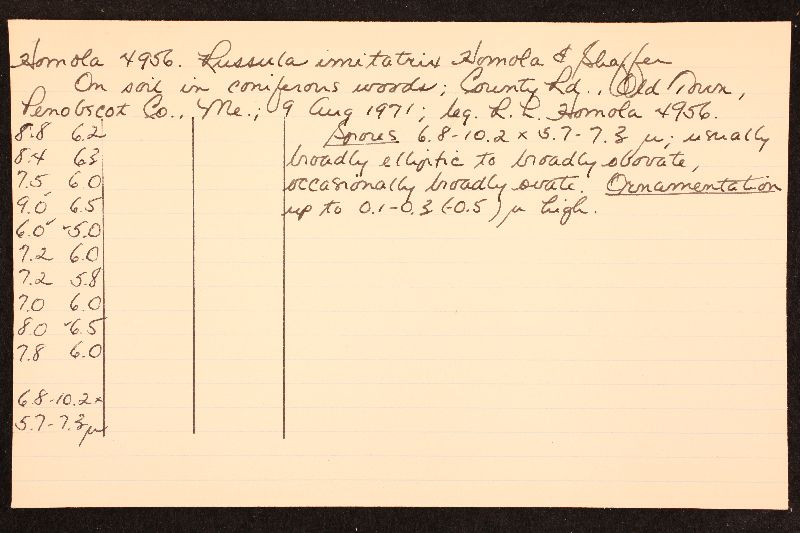 Homola 4956. Russula imitatrix Homola & Shaffer
On soil in coniferous woods; County Rd., Old Town,
Penobscot Co., Me.; 9 Aug 1971; leg. R. L. Homola 4956.
8.8 6.2
8.4 6.3
7.5 6.0
9.0 6.5
6.0 5.0
7.2 6.0
7.2 5.8
7.0 6.0
8.0 6.5
7.8 6.0
6.8-10.2 x
5.7-7.3 μ
Spores 6.8-10.2 x 5.7-7.3 μ; usually
broadly elliptic to broadly obovate,
occasionally broadly ovate. Ornamentation
up to 0.1-0.3 (-0.5) μ high.